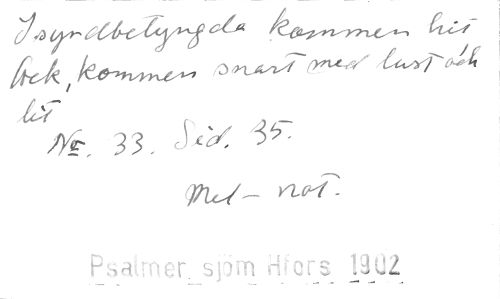 I syndbetyngda kommen hit
Ock, kommen snart med lust och
lit
No. 33. Sid. 35.
Mel - not.
Psalmer sjöm Hfors 1902